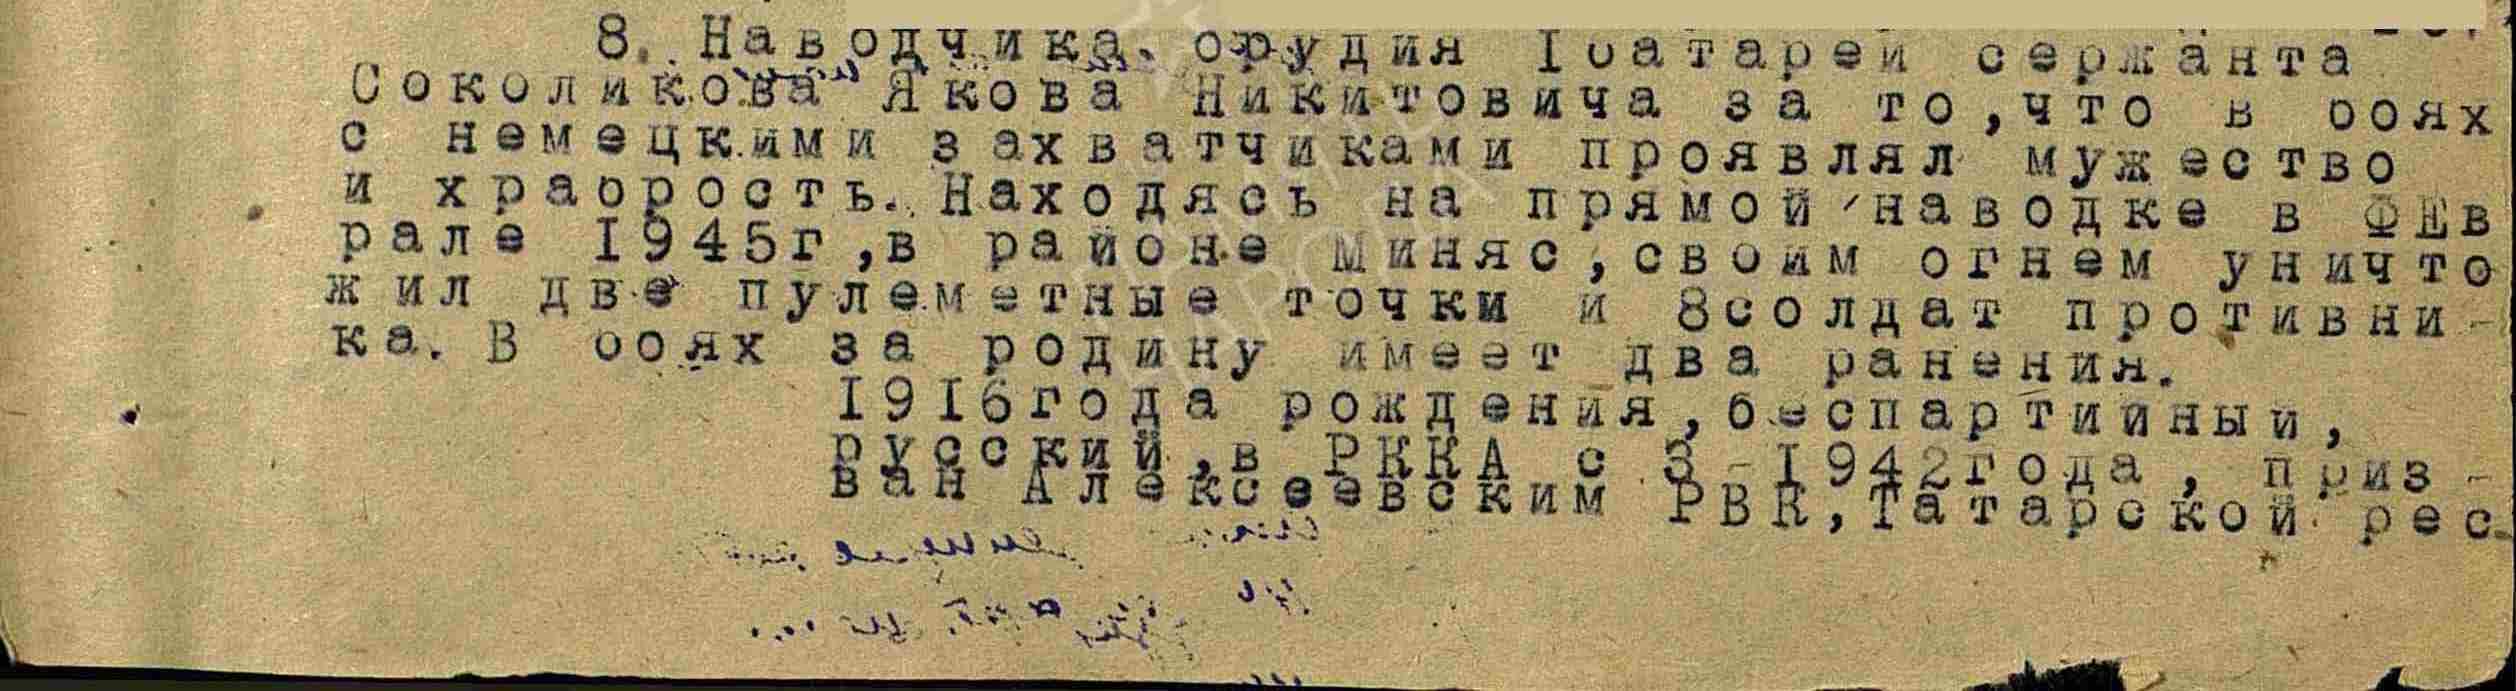 8. Наводчика орудия 1 батареи сержанта
Соколикова Якова Никитовича за то,что в боях
с немецкими захватчиками проявлял мужество
и храбрость. Находясь на прямой наводке в ФЕв
рале 1945г,в районе Миняс,своим огнем уничто
жил две пулеметные точки и 8солдат противни-
ка. В боях за родину имеет два ранения.
1916года рождения,беспартийный,
русский,в РККА с 3-1942года, приз-
ван Алексеевским РВК,Татарской рес
ПАМЯТЬ
НАРОДА